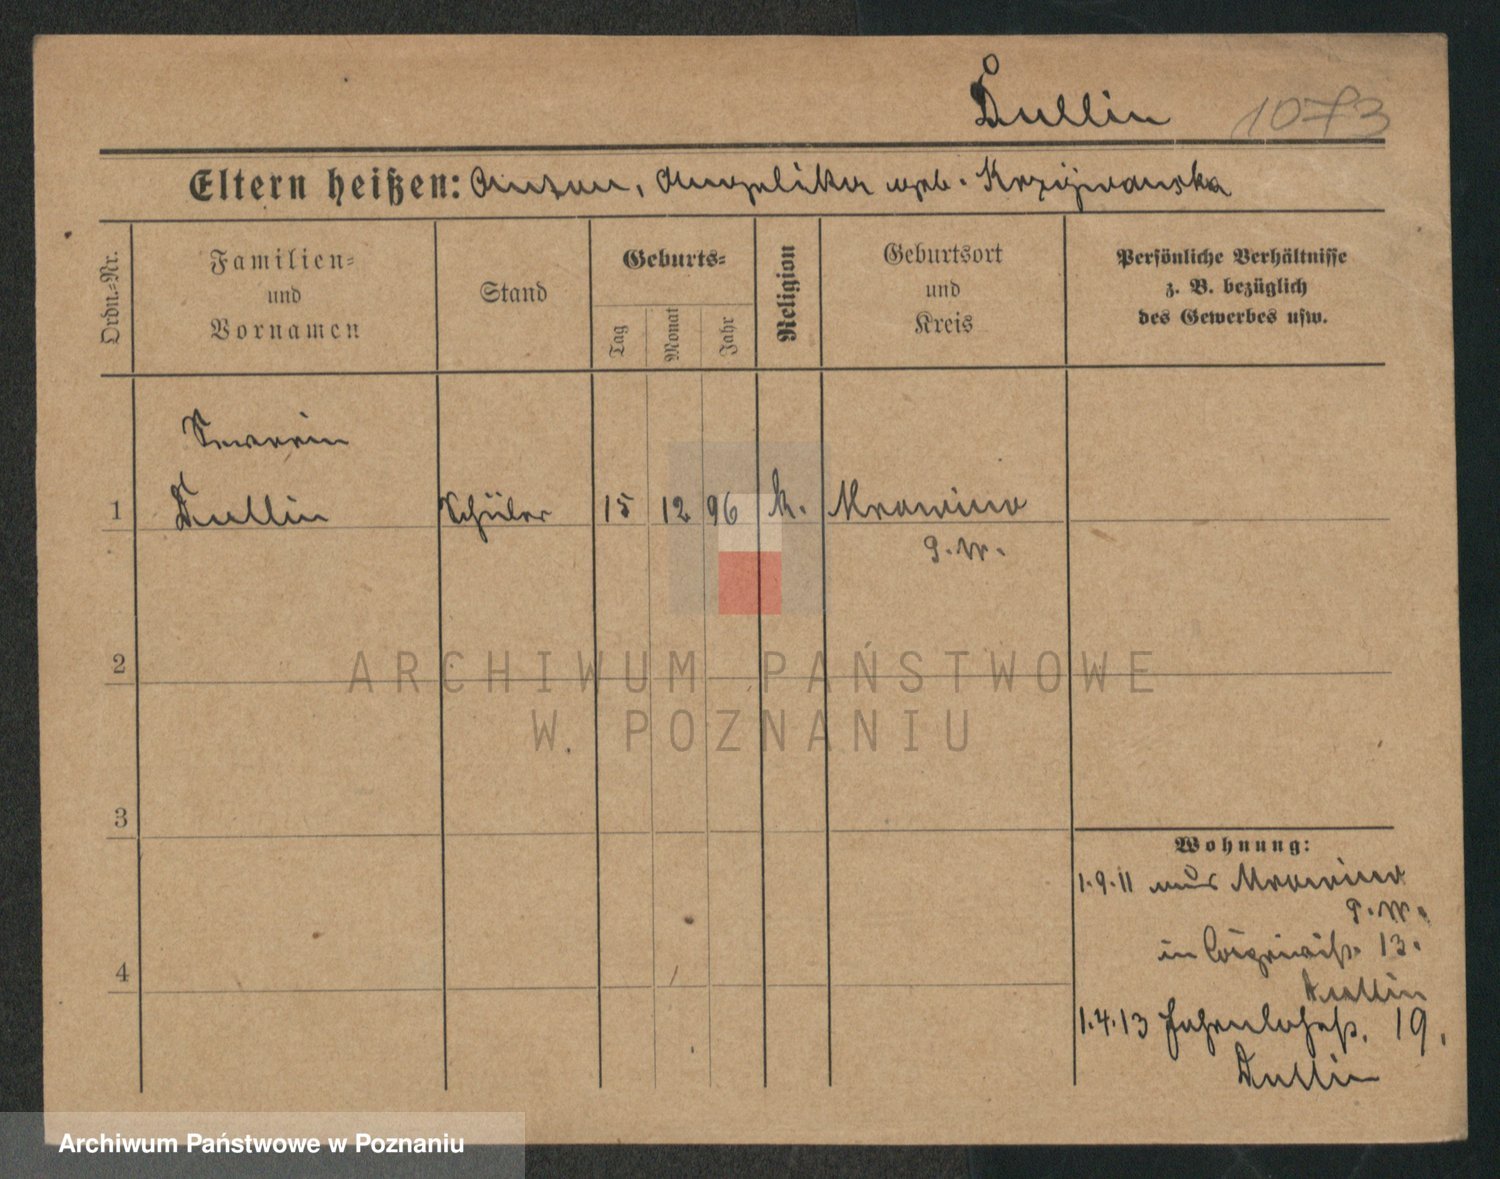 Dullin 1073
Eltern heißen: Anton, Angelika geb. Krzyżanska
Ordn.=Nr.
Familien=
und
Vornamen
Stand
Geburts=
Tag
Monat
Jahr
Religion
Geburtsort
und
Kreis
Persönliche Verhältnisse
z. B. bezüglich
des Gewerbes usw.
Severin
1 Dullin Schüler 15 12 96 k. Mrowino
P. W.
2
3
4
Wohnung:
1.9.11 aus Mrowino
P. W.
in 13.
Dullin
1.4.13 Hohenlohestr. 19.
Dullin
ARCHIWUM PAŃSTWOWE
W POZNANIU
Archiwum Państwowe w Poznaniu